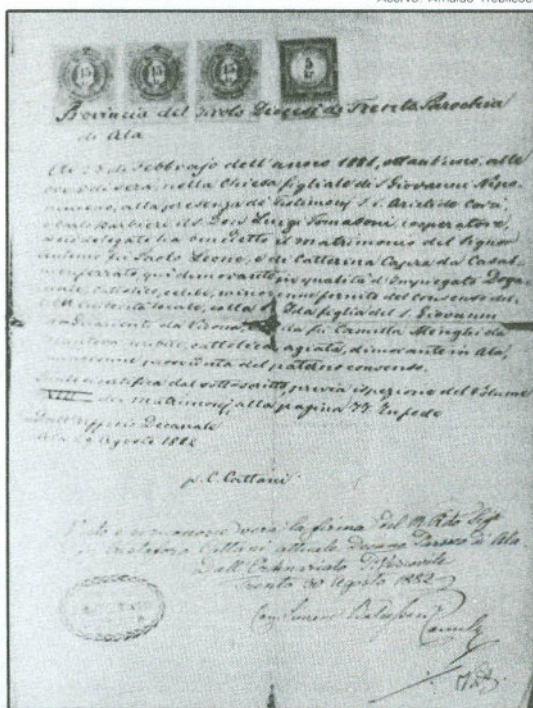 Acervo: Arnaldo
15 15 15 5
Provincia del Tirolo Diocesi di Trento Parochia
di Ala
di Febbrajo dell'anno 1881, ottantuno, alle
ore di sera, nella Chiesa figliale di S. Giovanni Nepo
muceno, alla presenza dei testimonj S. i.
e Carlo Barbieri il S. Don Luigi Tomasoni, cooperatore,
delegato ha benedetto il matrimonio del Signor
Antonio fu Paolo Leone, e di Catterina Capra da Casal
monferrato, qui dimorante in qualità d'Impiegato Doga
nale, cattolico, celibe, minorenne fornito del consenso del
colla S. Ida figlia del S. Giovanni
da Verona e da fu Camilla Menghi da
Mantova, nubile, cattolica, agiata, dimorante in Ala,
minorenne del paterno consenso.
certifica dal sottoscritto, previa ispezione del Volume
VIII dei Matrimonj, alla pagina 77. In fede
Dall'Ufficio Decanale
Ala 29 Agosto 1882
p. C. Cattani
la firma del M. Rdo Sig
Cattani attuale Decano Paroco di Ala.
Dall'
Trento 30 Agosto 1882